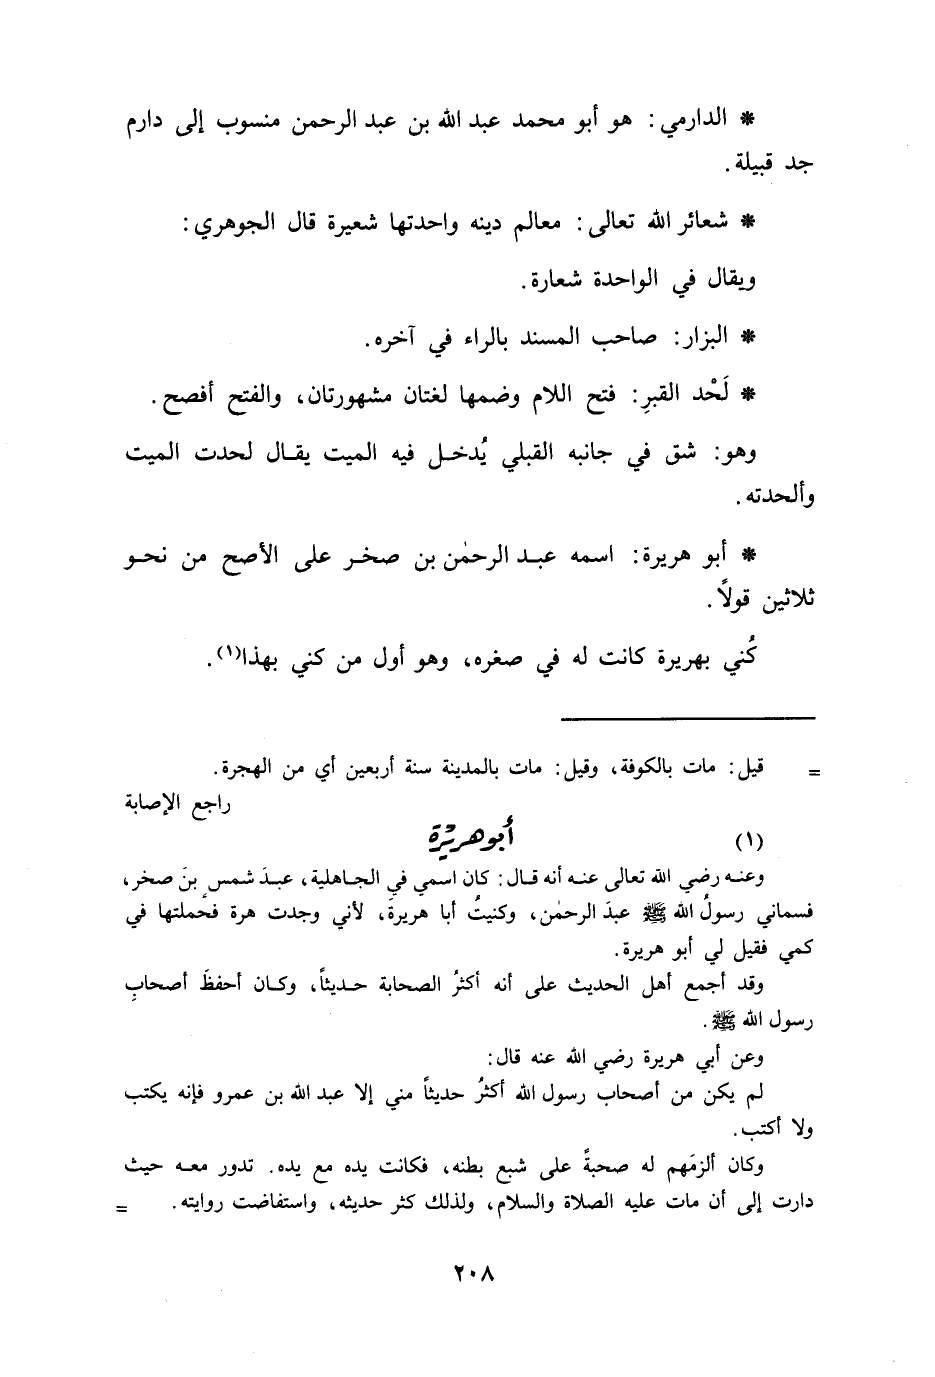 * الدارمي: هو أبو محمد عبد الله بن عبد الرحمن منسوب إلى دارم
جد قبيلة.
* شعائر الله تعالى: معالم دينه واحدتها شعيرة قال الجوهري:
ويقال في الواحدة شعارة.
* البزار: صاحب المسند بالراء في آخره.
* لَحْد القبرِ: فتح اللام وضمها لغتان مشهورتان، والفتح أفصح.
وهو: شق في جانبه القبلي يُدخل فيه الميت يقال لحدت الميت
وألحدته.
* أبو هريرة: اسمه عبد الرحمٰن بن صخر على الأصح من نحو
ثلاثين قولاً.
كُني بهريرة كانت له في صغره، وهو أول من كني بهذا(١).
= قيل: مات بالكوفة، وقيل: مات بالمدينة سنة أربعين أي من الهجرة.
راجع الإصابة
(١) أبو هريرة
وعنه رضي الله تعالى عنه أنه قال: كان اسمي في الجاهلية، عبدَ شمسِ بنَ صخر،
فسماني رسولُ الله ﷺ عبدَ الرحمٰن، وكنيتُ أبا هريرةَ، لأني وجدت هرة فحملتها في
كمي فقيل لي أبو هريرة.
وقد أجمع أهل الحديث على أنه أكثرُ الصحابة حديثاً، وكان أحفظَ أصحابِ
رسول الله ﷺ.
وعن أبي هريرة رضي الله عنه قال:
لم يكن من أصحاب رسول الله أكثرُ حديثاً مني إلا عبد الله بن عمرو فإنه يكتب
ولا أكتب.
وكان ألزمَهم له صحبةً على شبع بطنه، فكانت يده مع يده. تدور معه حيث
دارت إلى أن مات عليه الصلاة والسلام، ولذلك كثر حديثه، واستفاضت روايته. =
٢٠٨